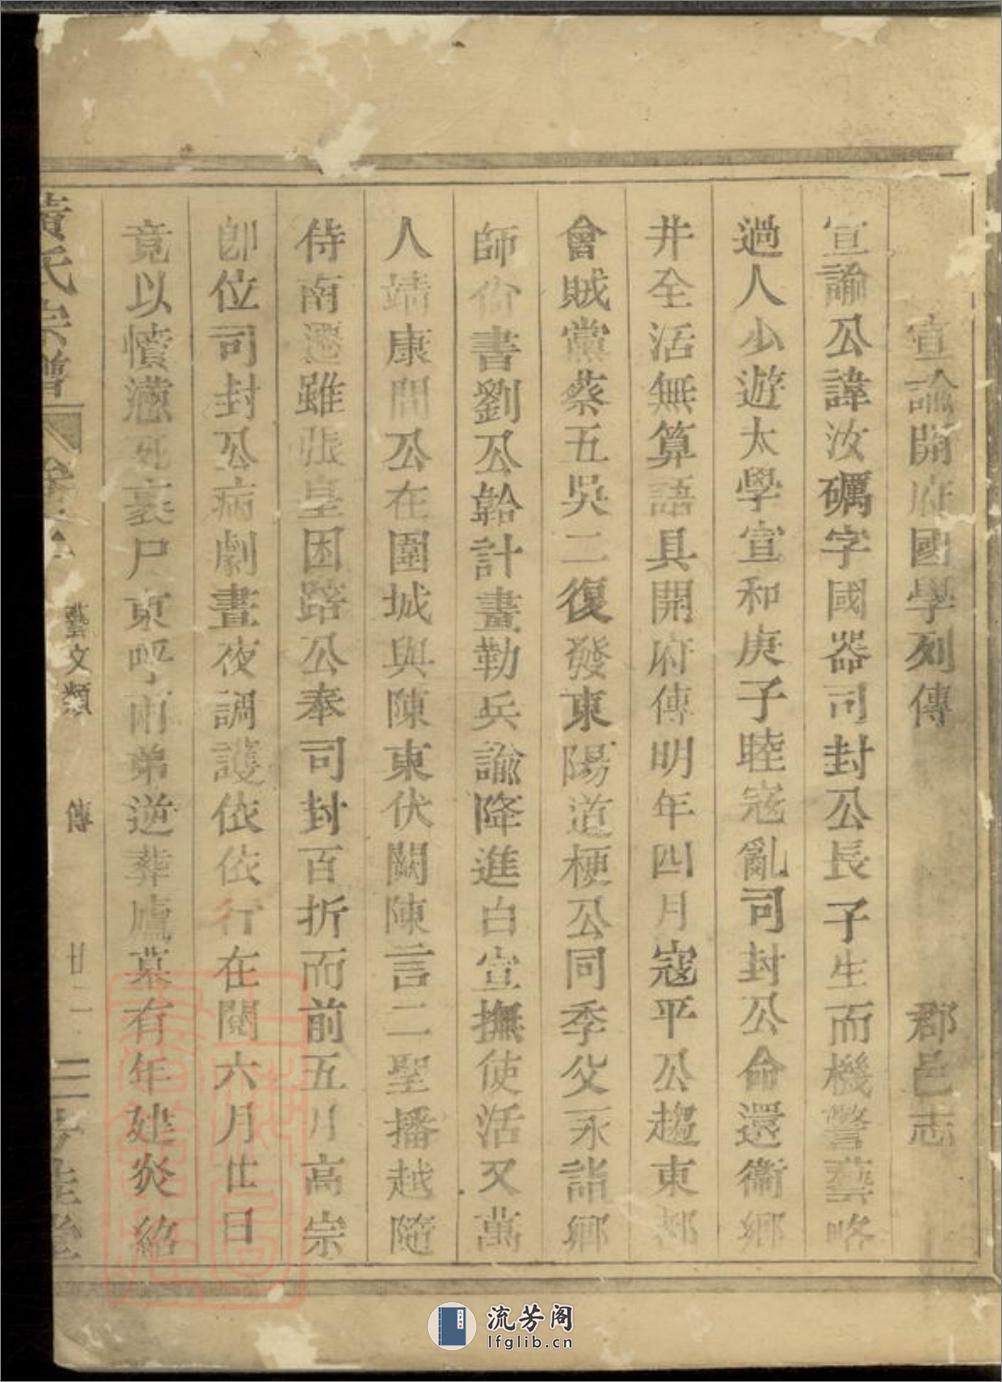 宣諭開府國學列傳 郡邑志
宣諭公諱汝礪字國器司封公長子生而機警藝略
過人少遊太學宣和庚子睦寇亂司封公命還衞鄉
井全活無算語具開府傳明年四月寇平公趨東都
會賊黨蔡五吳二復發東陽道梗公同季父永詣鄉
師尙書劉公韐計畫勒兵諭降進白宣撫使活又萬
人靖康間公在圍城與陳東伏闕陳言二聖播越隨
侍南遷雖張皇困踣公奉司封百折而前五月高宗
卽位司封公病劇晝夜調護依依行在閱六月廿日
竟以憤懣死裹尸東呼兩弟逆葬廬墓有年建炎紹
黃氏宗譜 藝文類 傳 廿二
流芳阁
lfglib.cn